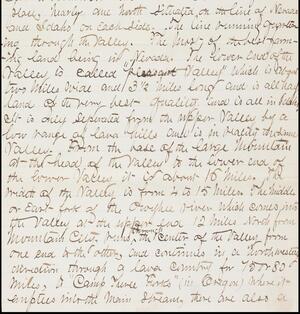 place. Nearly due North situated on the line of Nevada
and Idaho on each side. The line running
ing through the Valley. The most of the best farm
ing land being in Nevada. The lower end of the
Valley is called Pleasant Valley which is about
two miles wide and 3½ miles long and is all hay
land of the very best quality and is all in
It is only separated from the upper Valley by a
low range of lava hills and is in reality the same
Valley. From the base of the large Mountain
at the head of the Valley to the lower end of
the lower Valley it is about 16 miles. The
width of the Valley is from 4 to 15 miles. The middle
or East fork of the Owyhee river which comes into
the Valley at the upper end 12 miles North from
Mountain City, runs through the center of the Valley from
one end to the other, and continues in a Northwesterly
direction through a lava country for 75 or 80
miles, to "Camp Three Forks" (in Oregon) where it
empties into the Main Stream, there are also a